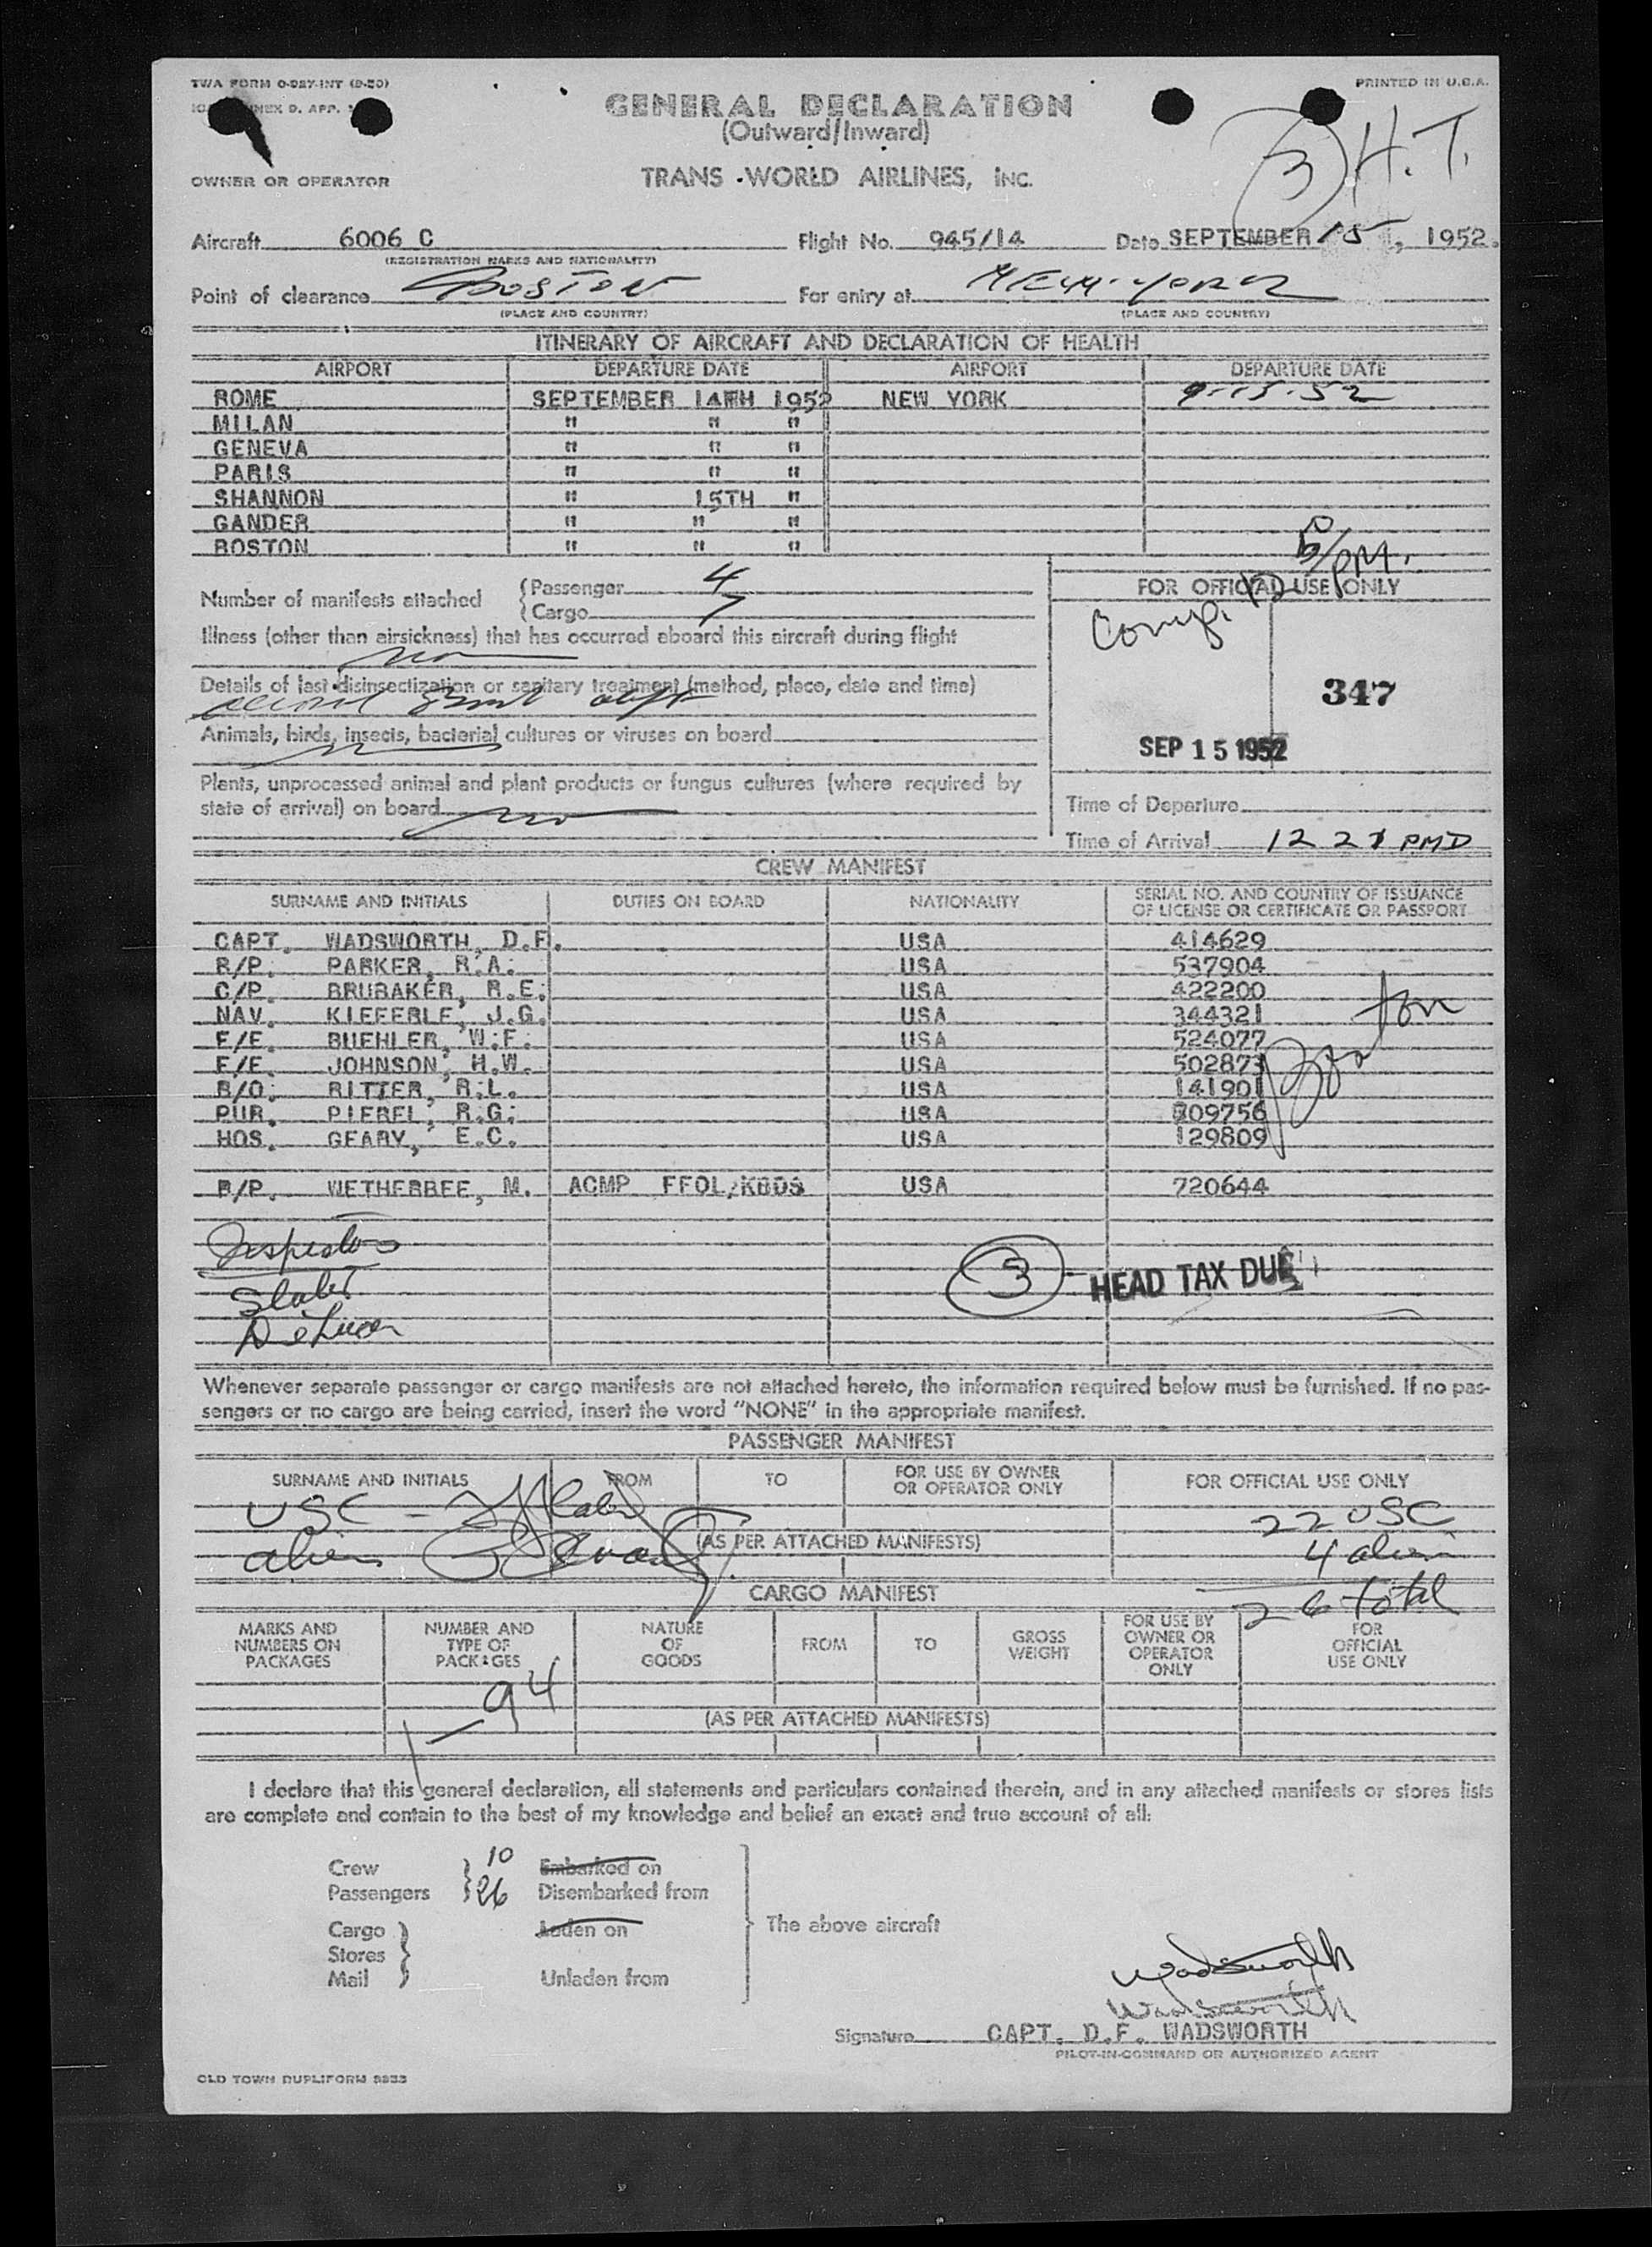 TWA FORM O-927-INT (9-50)
PRINTED IN U.S.A.
ANNEX 9. APP.
GENERAL DECLARATION
(Outward/Inward)
(3) H.T.
OWNER OR OPERATOR
TRANS WORLD AIRLINES, INC.
Aircraft 6006 C Flight No. 945/14 Date SEPTEMBER 15, 1952.
(REGISTRATION MARKS AND NATIONALITY)
Point of clearance BOSTON For entry at NEW YORK
(PLACE AND COUNTRY) (PLACE AND COUNTRY)
ITINERARY OF AIRCRAFT AND DECLARATION OF HEALTH
AIRPORT DEPARTURE DATE AIRPORT DEPARTURE DATE
ROME SEPTEMBER 14TH 1952 NEW YORK 9-15-52
MILAN " " "
GENEVA " " "
PARIS " " "
SHANNON " 15TH "
GANDER " " "
BOSTON " " "
Number of manifests attached
Passenger 4
Cargo 7
FOR OFFICIAL USE ONLY
PM.
Comp.
Illness (other than airsickness) that has occurred aboard this aircraft during flight
no
Details of last disinsectization or sanitary treatment (method, place, date and time)
347
Animals, birds, insects, bacterial cultures or viruses on board
SEP 15 1952
Plants, unprocessed animal and plant products or fungus cultures (where required by
state of arrival) on board no
Time of Departure
Time of Arrival 12 21 PMD
CREW MANIFEST
SURNAME AND INITIALS DUTIES ON BOARD NATIONALITY SERIAL NO. AND COUNTRY OF ISSUANCE
OF LICENSE OR CERTIFICATE OR PASSPORT
CAPT. WADSWORTH, D.F. USA 414629
R/P. PARKER, R.A. USA 537904
C/P. BRUBAKER, R.E. USA 422200
NAV. KIEFERLE, J.G. USA 344321
F/E. BUEHLER, W.F. USA 524077
F/E. JOHNSON, H.W. USA 502873
R/O. RITTER, R.L. USA 141901
PUR. PIEREL, R.G. USA 209756
HOS. GEARY, E.C. USA 129809
Boston
R/P. WETHERBEE, M. ACMP FFOL/KBOS USA 720644
Inspectors
Slater
DeLuca
(3) - HEAD TAX DUE
Whenever separate passenger or cargo manifests are not attached hereto, the information required below must be furnished. If no pas-
sengers or no cargo are being carried, insert the word "NONE" in the appropriate manifest.
PASSENGER MANIFEST
SURNAME AND INITIALS FROM TO FOR USE BY OWNER
OR OPERATOR ONLY FOR OFFICIAL USE ONLY
USC - 22 USC
(AS PER ATTACHED MANIFESTS)
alien 4 alien
26 total
CARGO MANIFEST
MARKS AND
NUMBERS ON
PACKAGES
NUMBER AND
TYPE OF
PACKAGES
NATURE
OF
GOODS
FROM
TO
GROSS
WEIGHT
FOR USE BY
OWNER OR
OPERATOR
ONLY
FOR
OFFICIAL
USE ONLY
94
(AS PER ATTACHED MANIFESTS)
I declare that this general declaration, all statements and particulars contained therein, and in any attached manifests or stores lists
are complete and contain to the best of my knowledge and belief an exact and true account of all:
Crew 10 Embarked on
Passengers 26 Disembarked from
Cargo Laden on
Stores
Mail Unladen from
The above aircraft
Wadsworth
Wadsworth
Signature CAPT. D.F. WADSWORTH
PILOT-IN-COMMAND OR AUTHORIZED AGENT
OLD TOWN DUPLIFORM